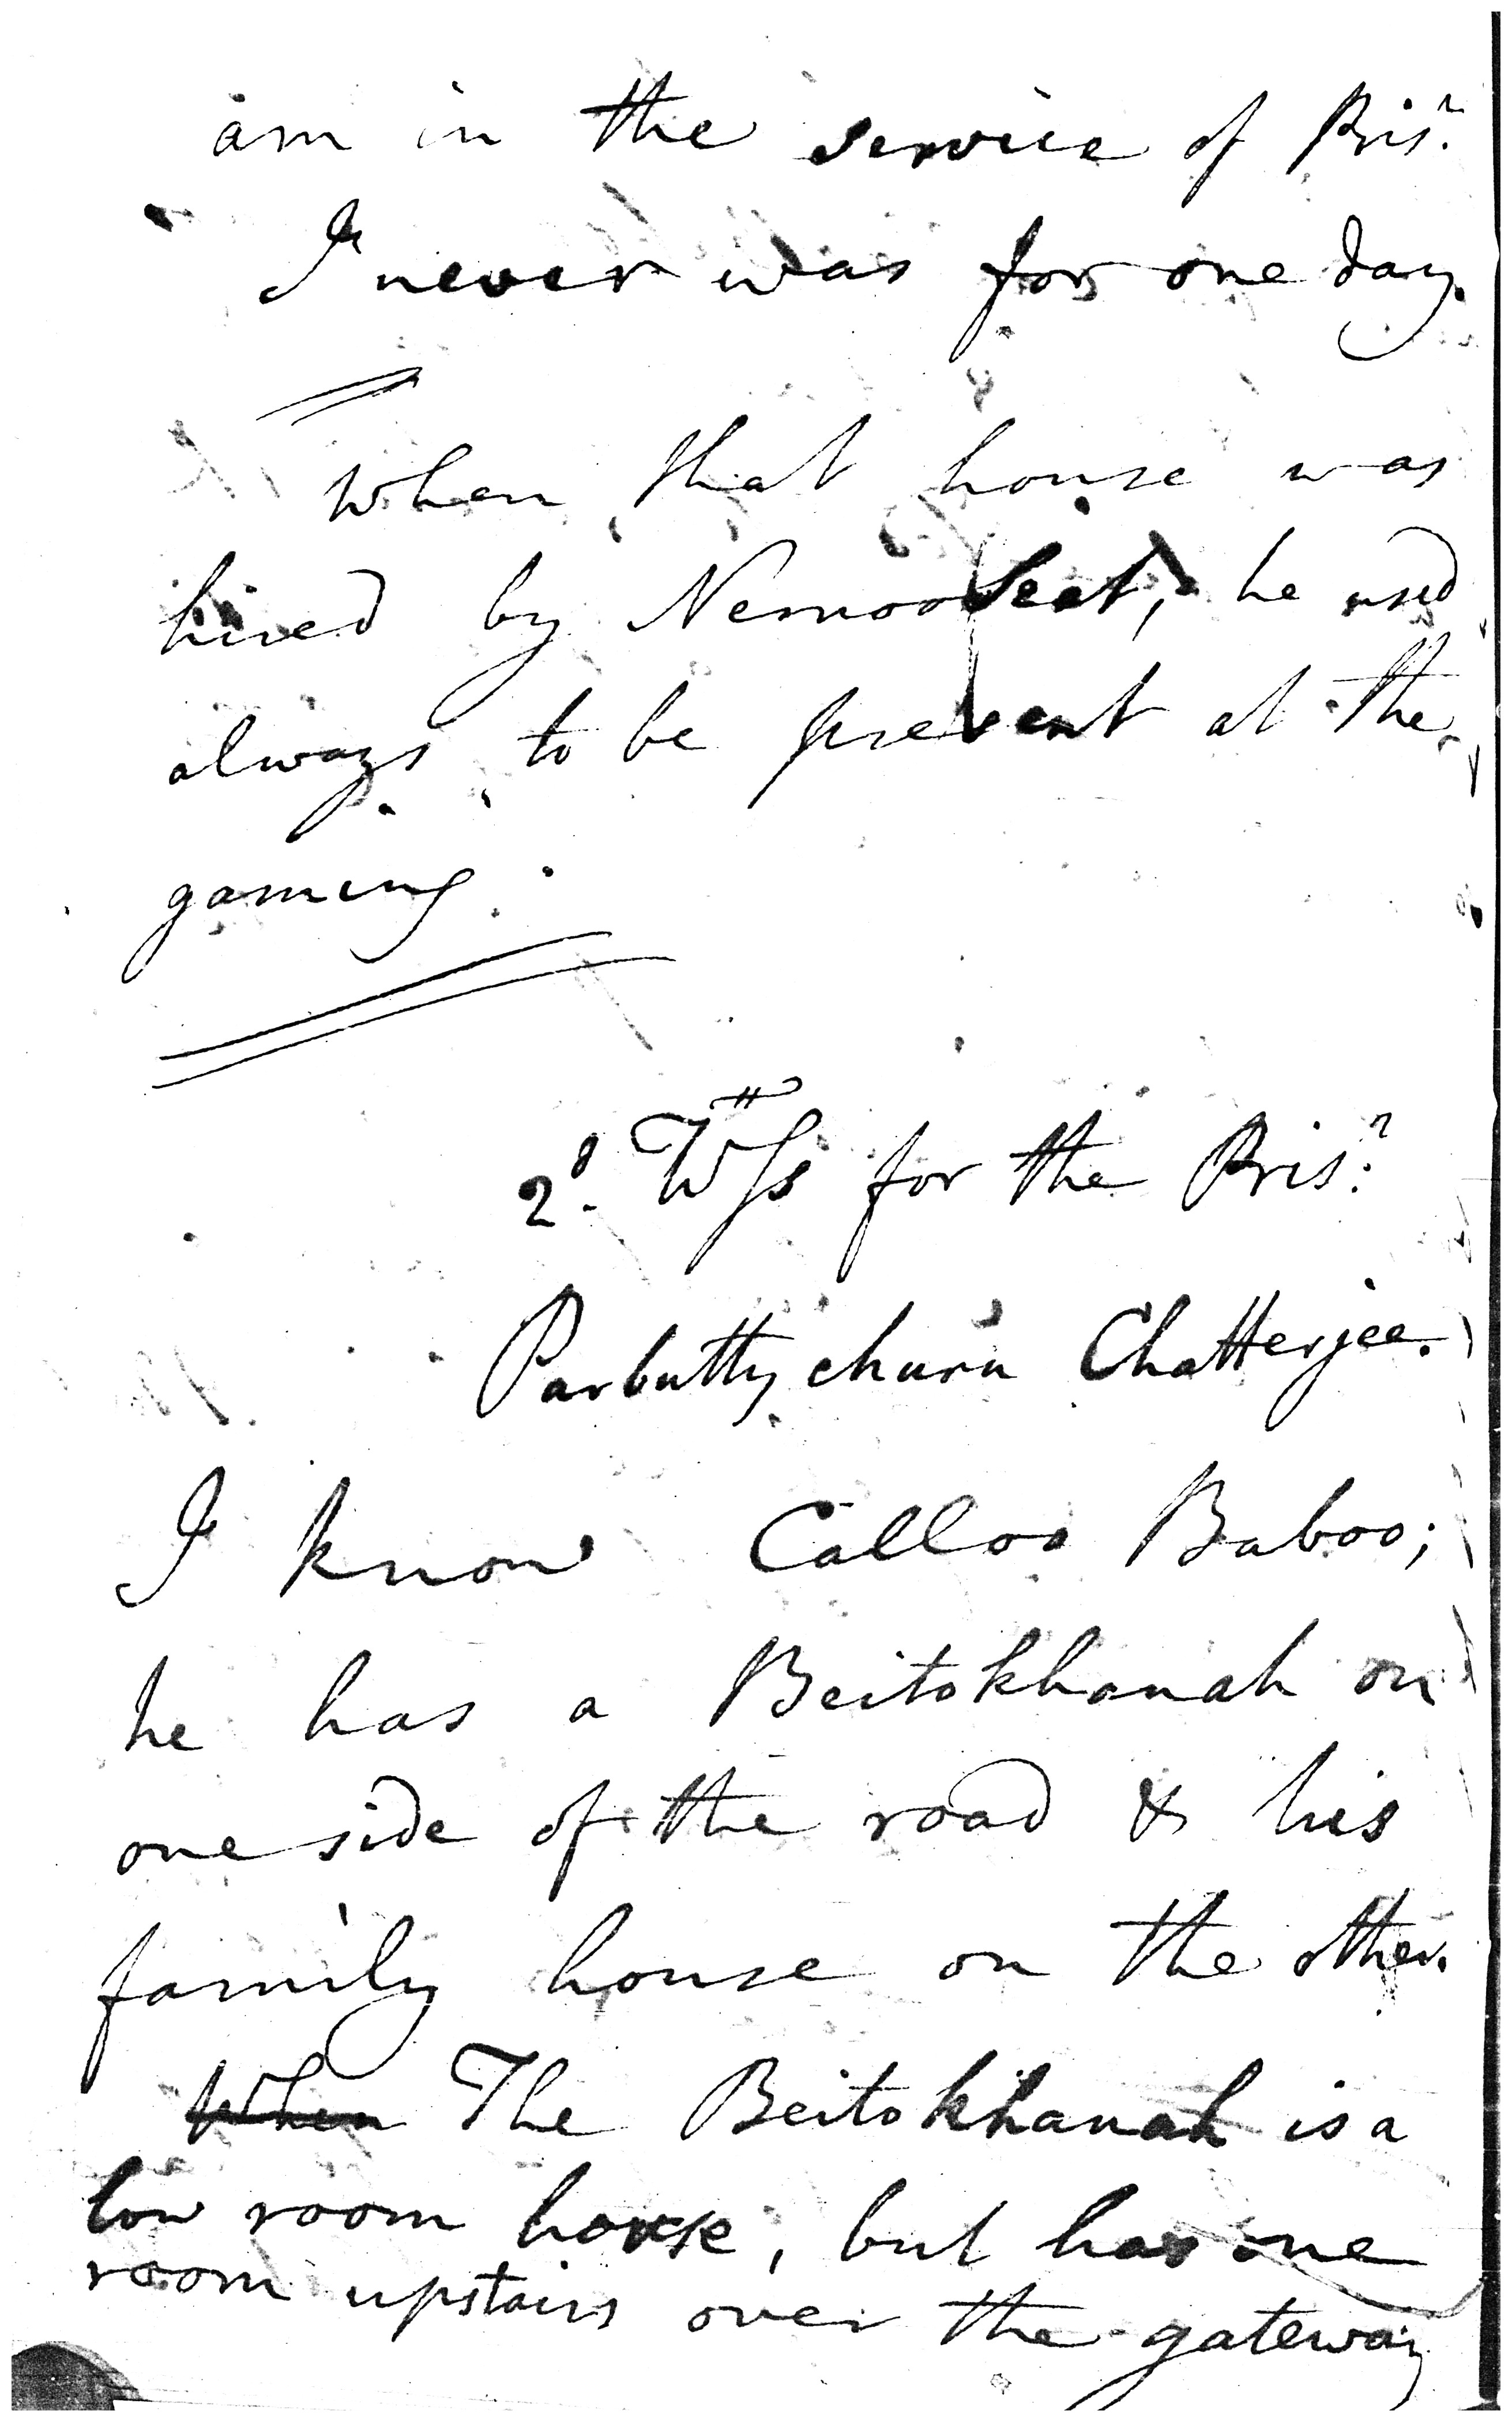 am in the service of Prisr.
I never was for one day.
When that house was
hired by Nemoo Seet, he used
always to be present at the
gaming.
2d. Wss for the Prisr.
Parbutty churn Chatterjee.
I know Calloo Baboo;
he has a Beitokhanah on
one side of the road & his
family house on the other.
When The Beitokhanah is a
low room house, but has one
room upstairs over the gateway